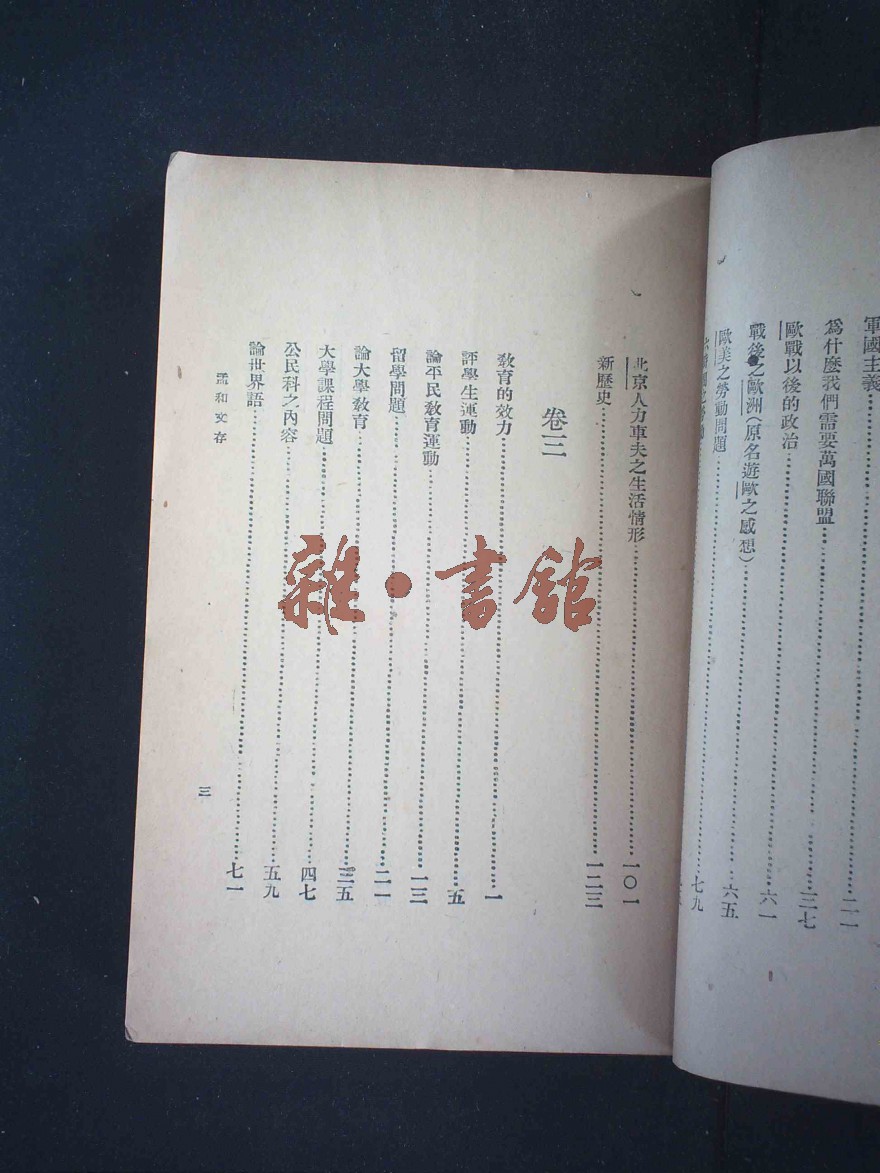 軍國主義……二一
爲什麼我們需要萬國聯盟……三七
歐戰以後的政治……六一
戰後之歐洲（原名遊歐之感想）……六五
歐美之勞動問題……七九
北京人力車夫之生活情形……一〇一
新歷史……一二三
卷三
教育的效力……一
評學生運動……五
論平民教育運動……一三
留學問題……二一
論大學教育……三五
大學課程問題……四七
公民科之內容……五九
論世界語……七一
孟和文存
三
雜·書館